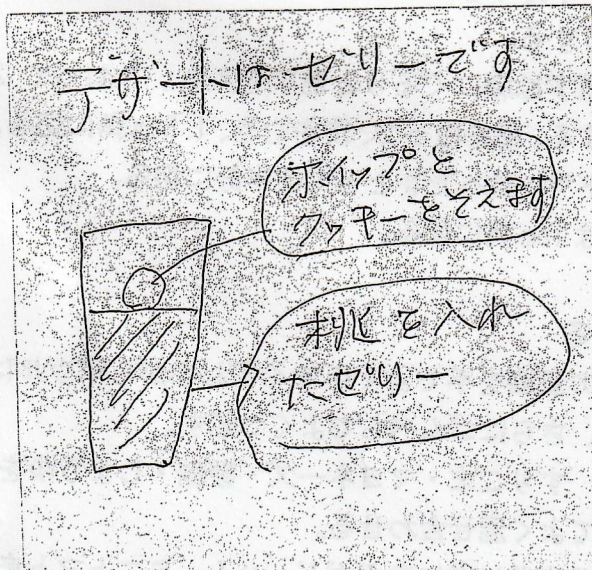 デザートはゼリーです
ホイップと
クッキーをそえます
桃を入れ
たゼリー